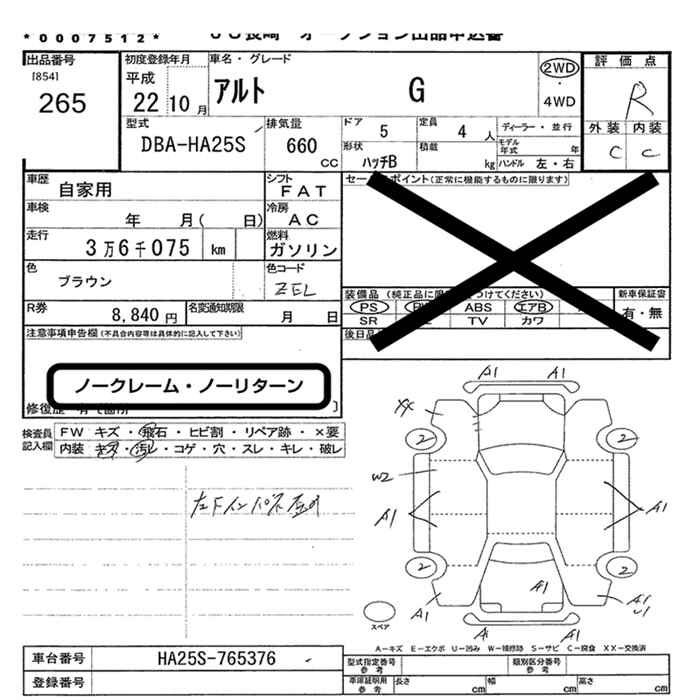 *0007512*
JU長崎 オークション出品申込書
出品番号
[854]
265
初度登録年月
平成
22 10月
車名・グレード
アルト G
2WD
・
4WD
評価点
R
外装 内装
C C
型式
DBA-HA25S
排気量
660
CC
ドア
5
定員
4 人
ディーラー・並行
形状
ハッチB
積載
kg
モデル年式 年
ハンドル 左・右
車歴
自家用
シフト
FAT
セールスポイント(正常に機能するものに限ります)
車検
年 月( 日)
冷房
AC
走行
3万6千075 km
燃料
ガソリン
色
ブラウン
色コード
ZEL
R券
8,840 円
名変通知期限
月 日
装備品
PS ABS エアB
SR TV カワ
新車保証書
有・無
後日品
注意事項申告欄(不具合内容等は具体的に記入して下さい)
ノークレーム・ノーリターン
修復歴
検査員
記入欄
FW キズ・飛石・ヒビ割・リペア跡・×要
内装 キズ・汚レ・コゲ・穴・スレ・キレ・破レ
左Fインパネ
A1 A1
XX
2 2
W2
A1 A1
2 2
A1
A1 A1
U1
A1 A1
スペア
A-キズ E-エクボ U-凹み W-補修跡 S-サビ C-腐食 XX-交換済
車台番号
HA25S-765376
登録番号
型式指定番号
参考
類別区分番号
参考
車庫証明用
参考
長さ cm
幅 cm
高さ cm